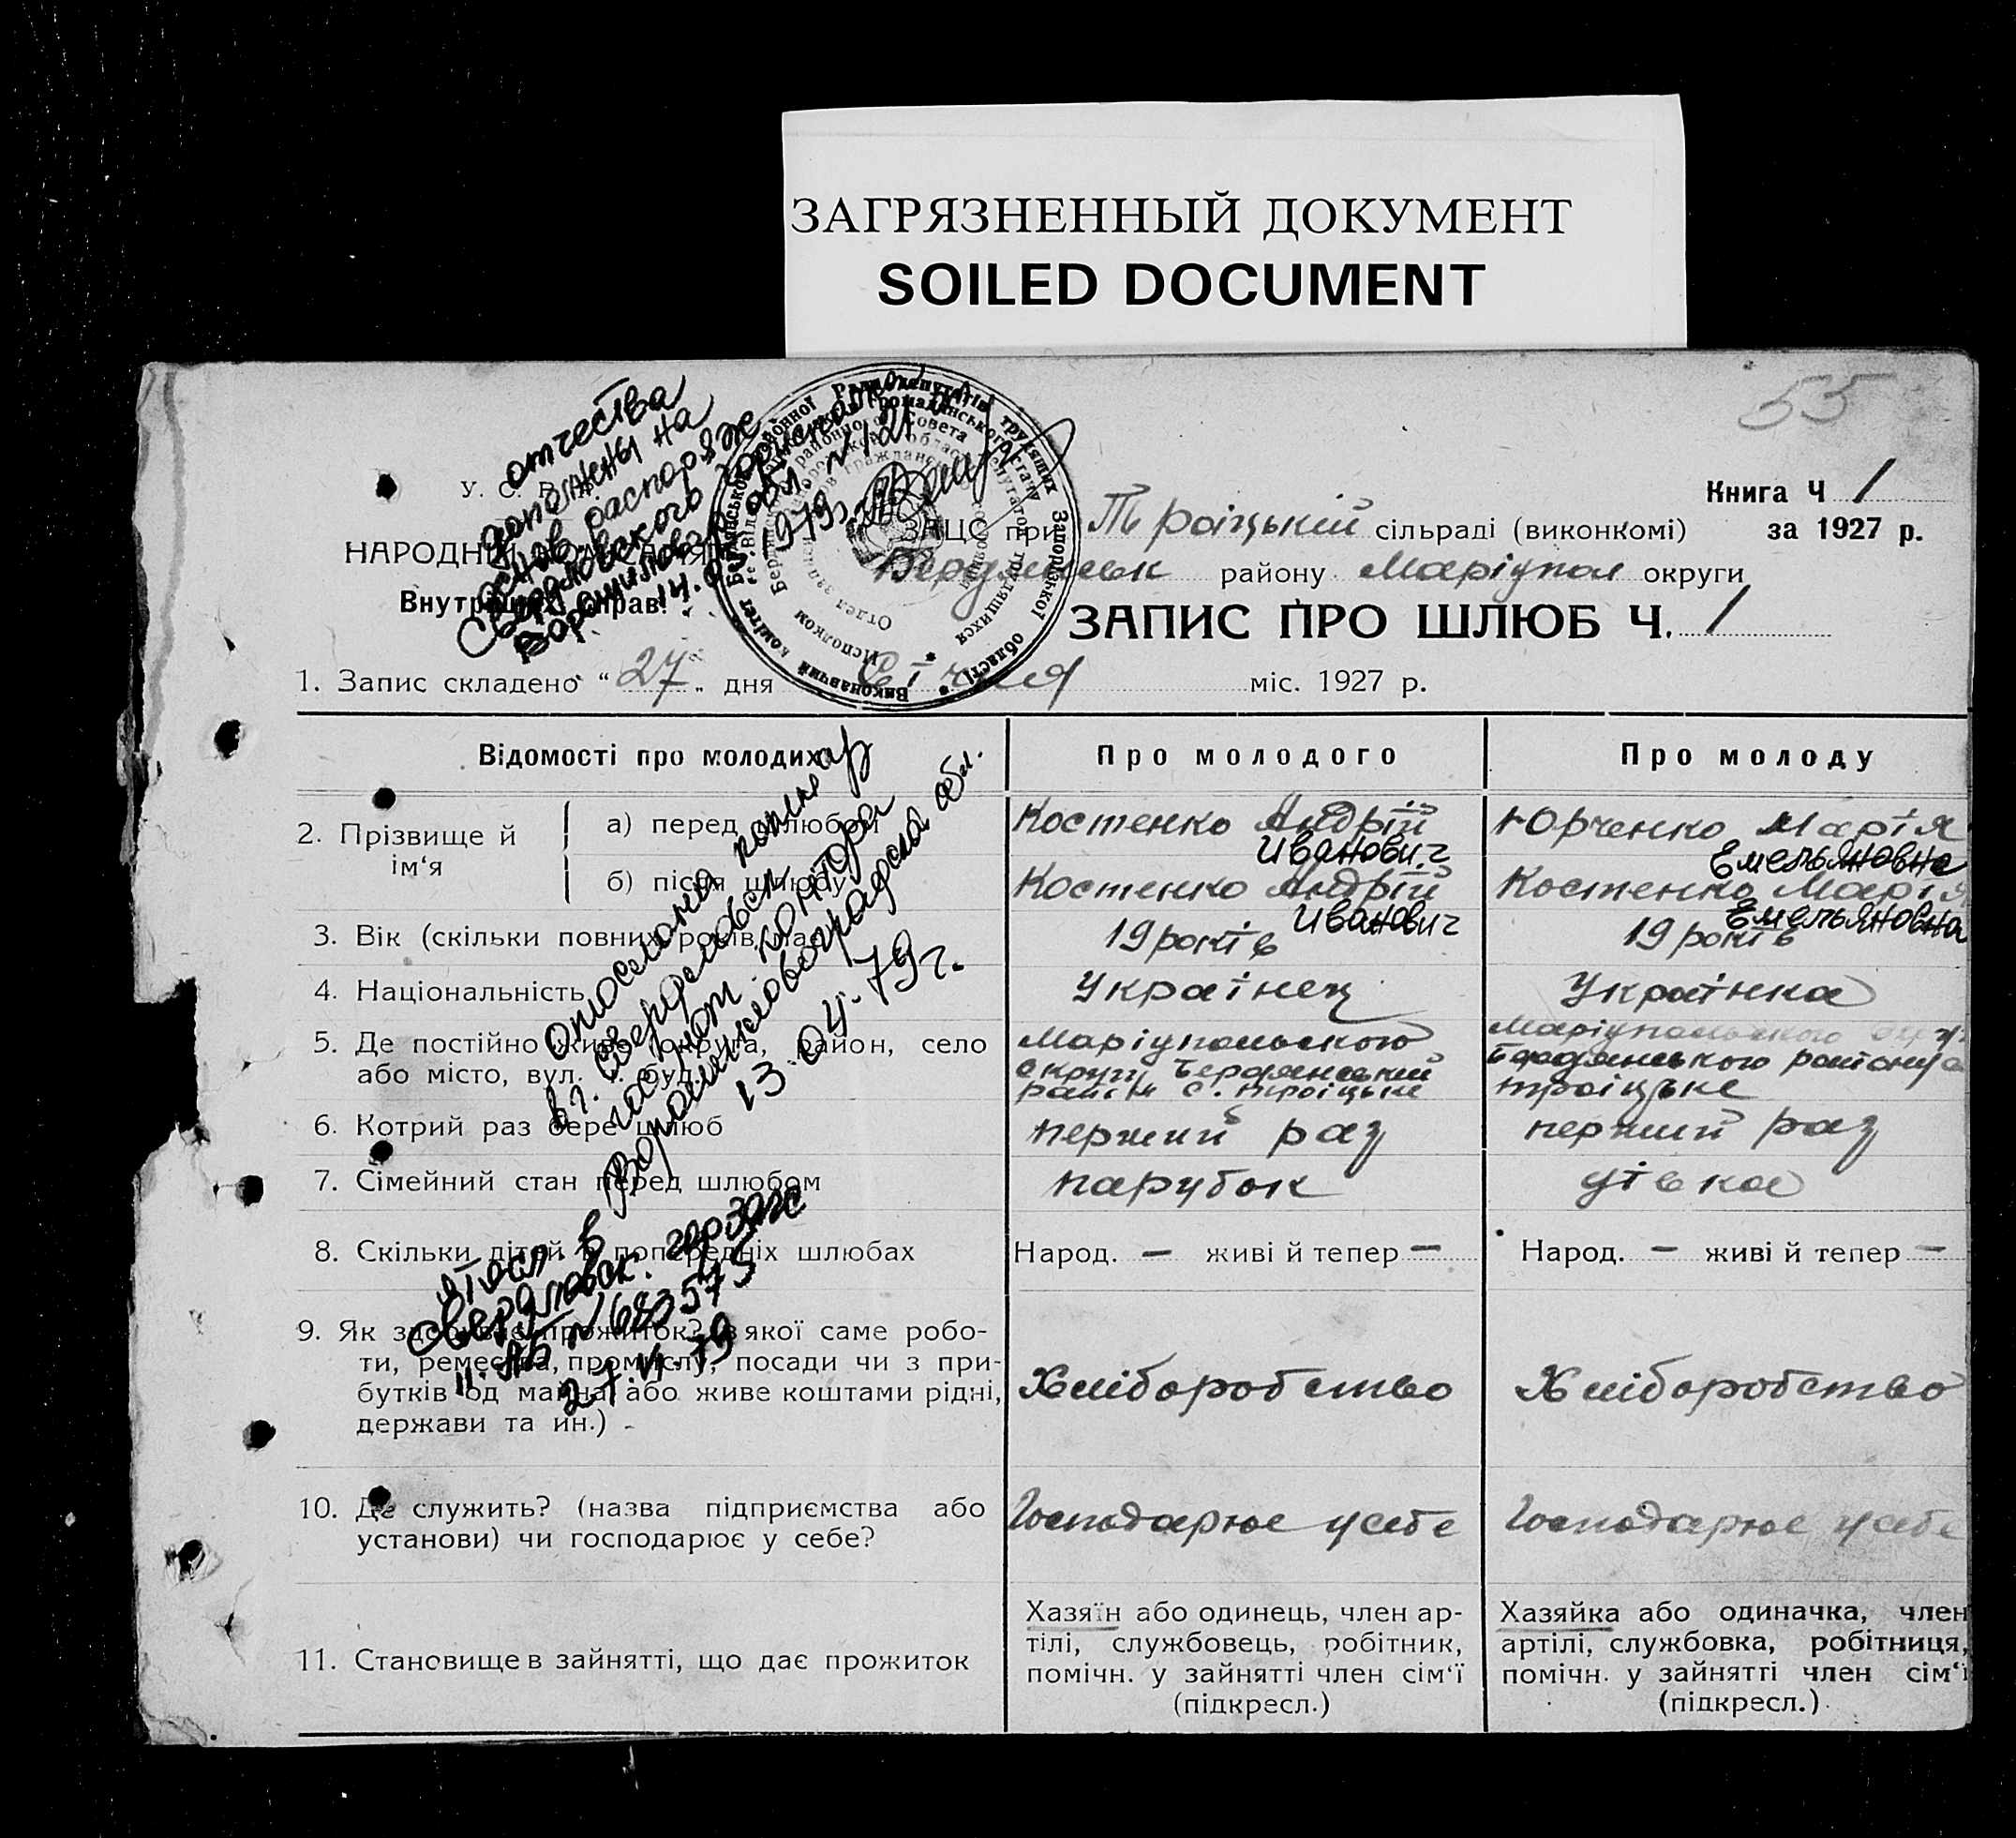 ЗАГРЯЗНЕННЫЙ ДОКУМЕНТ
SOILED DOCUMENT
55
отчества
дополнены на
основ. распоряж
Свердловского горисполкома
Ворошиловгр обл №121
14.
1979г.
У. С.
НАРОДНІЙ
Внутрішніх Справ.
Виконавчий комітет Бердянської районної Ради депутатів трудящих Запорізької області
Книга Ч 1
ЗАЦС при Троіцькій сільраді (виконкомі)
за 1927 р.
Бердянськ району Маріупол округи
ЗАПИС ПРО ШЛЮБ Ч. 1
1. Запис складено “27„ дня Січня міс. 1927 р.
Відомості про молодих
Про молодого
Про молоду
2. Прізвище й ім‘я
а) перед шлюбом
Костенко Андрій
Иванович
Юрченко Марія
Емельяновна
б) після шлюбу
Костенко Андрій
Иванович
Костенко Марія
Емельяновна
3. Вік (скільки повних років має)
19 років
19 років
4. Національність
Украінец
Украінка
5. Де постійно живе (округа, район, село
або місто, вул. ч. буд.)
Маріупольского
округи Бердянський
район с. Троіцьке
Маріупольского окр
Бердянського району с
Троіцьке
6. Котрий раз бере шлюб
перший раз
перший раз
7. Сімейний стан перед шлюбом
парубок
дівка
8. Скільки дітей в попередніх шлюбах
Народ. — живі й тепер —
Народ. — живі й тепер —
9. Як здобуває прожиток? (з якої саме робо-
ти, ремества, промислу, посади чи з при-
бутків од майна або живе коштами рідні,
держави та ин.)
Хліборобство
Хліборобство
10. Де служить? (назва підприємства або
установи) чи господарює у себе?
Господарює усебе
Господарює усебе
11. Становище в зайнятті, що дає прожиток
Хазяїн або одинець, член ар-
тілі, службовець, робітник,
помічн. у зайнятті член сім‘ї
(підкресл.)
Хазяйка або одиначка, член
артілі, службовка, робітниця,
помічн. у зайнятті член сім‘ї
(підкресл.)
отослана копия
в г. Свердловск
нот. контора
Ворошиловоградская обл.
13.04.79г.
в
Свердловск. горзагс
II-АБ №683575
27.VI.79